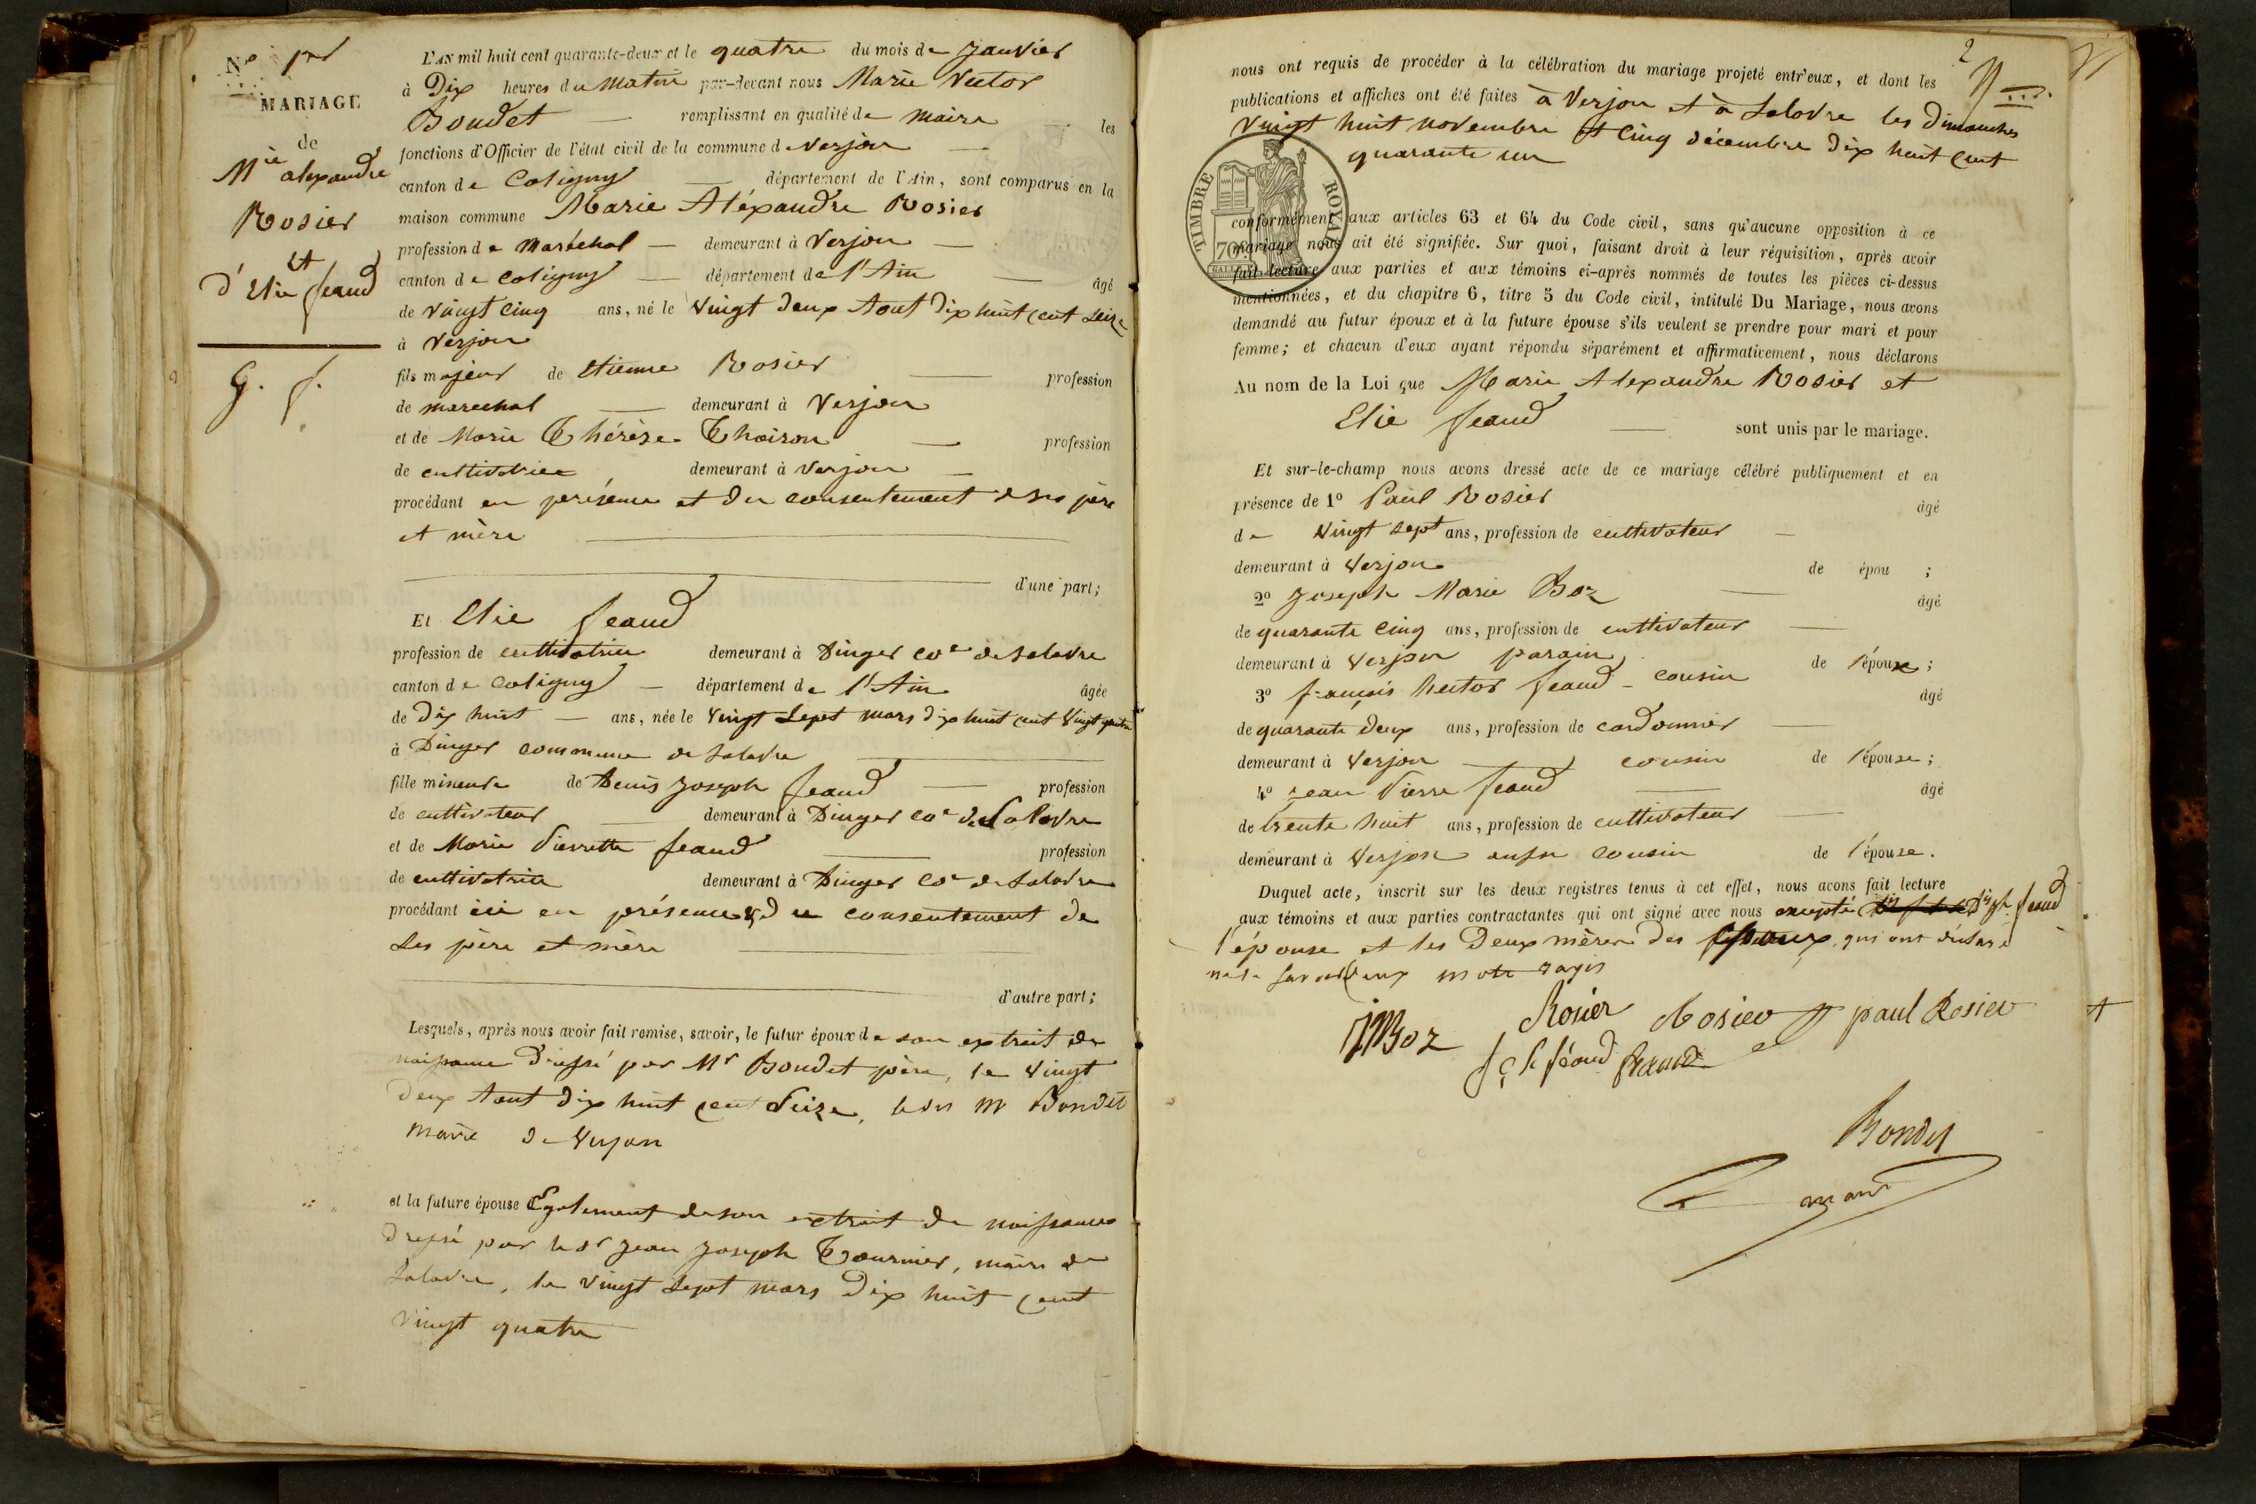 N° 1er
MARIAGE
de
Mie alexandre
Rosier
et
d'Elie feaud
G. f.
L'AN mil huit cent quarante-deux et le quatre du mois de Janvier
à Dix heures du matin par-devant nous Marie Victor
Boudet remplissant en qualité de maire les
fonctions d'Officier de l'état civil de la commune d Verjon
canton de Coligny département de l'Ain, sont comparus en la
maison commune Marie Aléxandre Rosier
profession de maréchal demeurant à Verjon
canton de coligny département de l'Ain âgé
de vingt cinq ans, né le vingt deux Aout dix huit cent seize
à Verjon
fils majeur de Etienne Rosier profession
de marechal demeurant à Verjon
et de Marie Thérèse Thoiron profession
de cultivatrice demeurant à Verjon
procédant en présence et du consentement de ses père
et mère
d'une part;
Et Elie feaud
profession de cultivatrice demeurant à Dingier coe de Salavre
canton de coligny département de l'Ain âgée
de dix huit ans, née le vingt sept mars dix huit cent vingt quatre
à Dingier commune de Salavre
fille mineure de Denis Joseph feaud profession
de cultivateur demeurant à Dingier coe de Salavre
et de Marie Pierrette feaud profession
de cultivatrice demeurant à Dingier coe de Salavre
procédant ici en présence & du consentement de
ses père et mère
d'autre part;
Lesquels, après nous avoir fait remise, savoir, le futur époux de son extrait de
naissance dressé par Mr Boudet père, le vingt
deux Aout dix huit cent seize, le dit Mr Boudet
maire de Verjon
et la future épouse Egalement de son extrait de naissance
dressé par le sr Jean Joseph Tournier, maire de
Salavre, le vingt sept mars dix huit cent
vingt quatre
2
nous ont requis de procéder à la célébration du mariage projeté entr'eux, et dont les
publications et affiches ont été faites à Verjon et à Salavre les dimanches
vingt huit novembre et cinq décembre dix huit cent
quarante un
TIMBRE ROYAL
70
conformément aux articles 63 et 64 du Code civil, sans qu'aucune opposition à ce
mariage nous ait été signifiée. Sur quoi, faisant droit à leur réquisition, après avoir
fait lecture aux parties et aux témoins ci-après nommés de toutes les pièces ci-dessus
mentionnées, et du chapitre 6, titre 5 du Code civil, intitulé Du Mariage, nous avons
demandé au futur époux et à la future épouse s'ils veulent se prendre pour mari et pour
femme; et chacun d'eux ayant répondu séparément et affirmativement, nous déclarons
Au nom de la Loi que Marie Alexandre Rosier et
Elie feaud sont unis par le mariage.
Et sur-le-champ nous avons dressé acte de ce mariage célébré publiquement et en
présence de 1° Paul Rosier âgé
de vingt sept ans, profession de cultivateur
demeurant à Verjon de épou ;
2° Joseph Marie Boz âgé
de quarante cinq ans, profession de cultivateur
demeurant à Verjon parain de l'époux;
3° françois hector feaud cousin âgé
de quarante deux ans, profession de cordonnier
demeurant à Verjon cousin de l'épouse;
4° Jean Pierre feaud âgé
de trente huit ans, profession de cultivateur
demeurant à Verjon aussi cousin de l'épouse.
Duquel acte, inscrit sur les deux registres tenus à cet effet, nous avons fait lecture
aux témoins et aux parties contractantes qui ont signé avec nous excepté Ds jh feaud
l'épouse et les deux mères des époux, qui ont déclaré
ne le savoir deux mots rayés
Rosier Rosier paul Rosier
JMBoz
fçs h féaud feaud
Boudet
maire